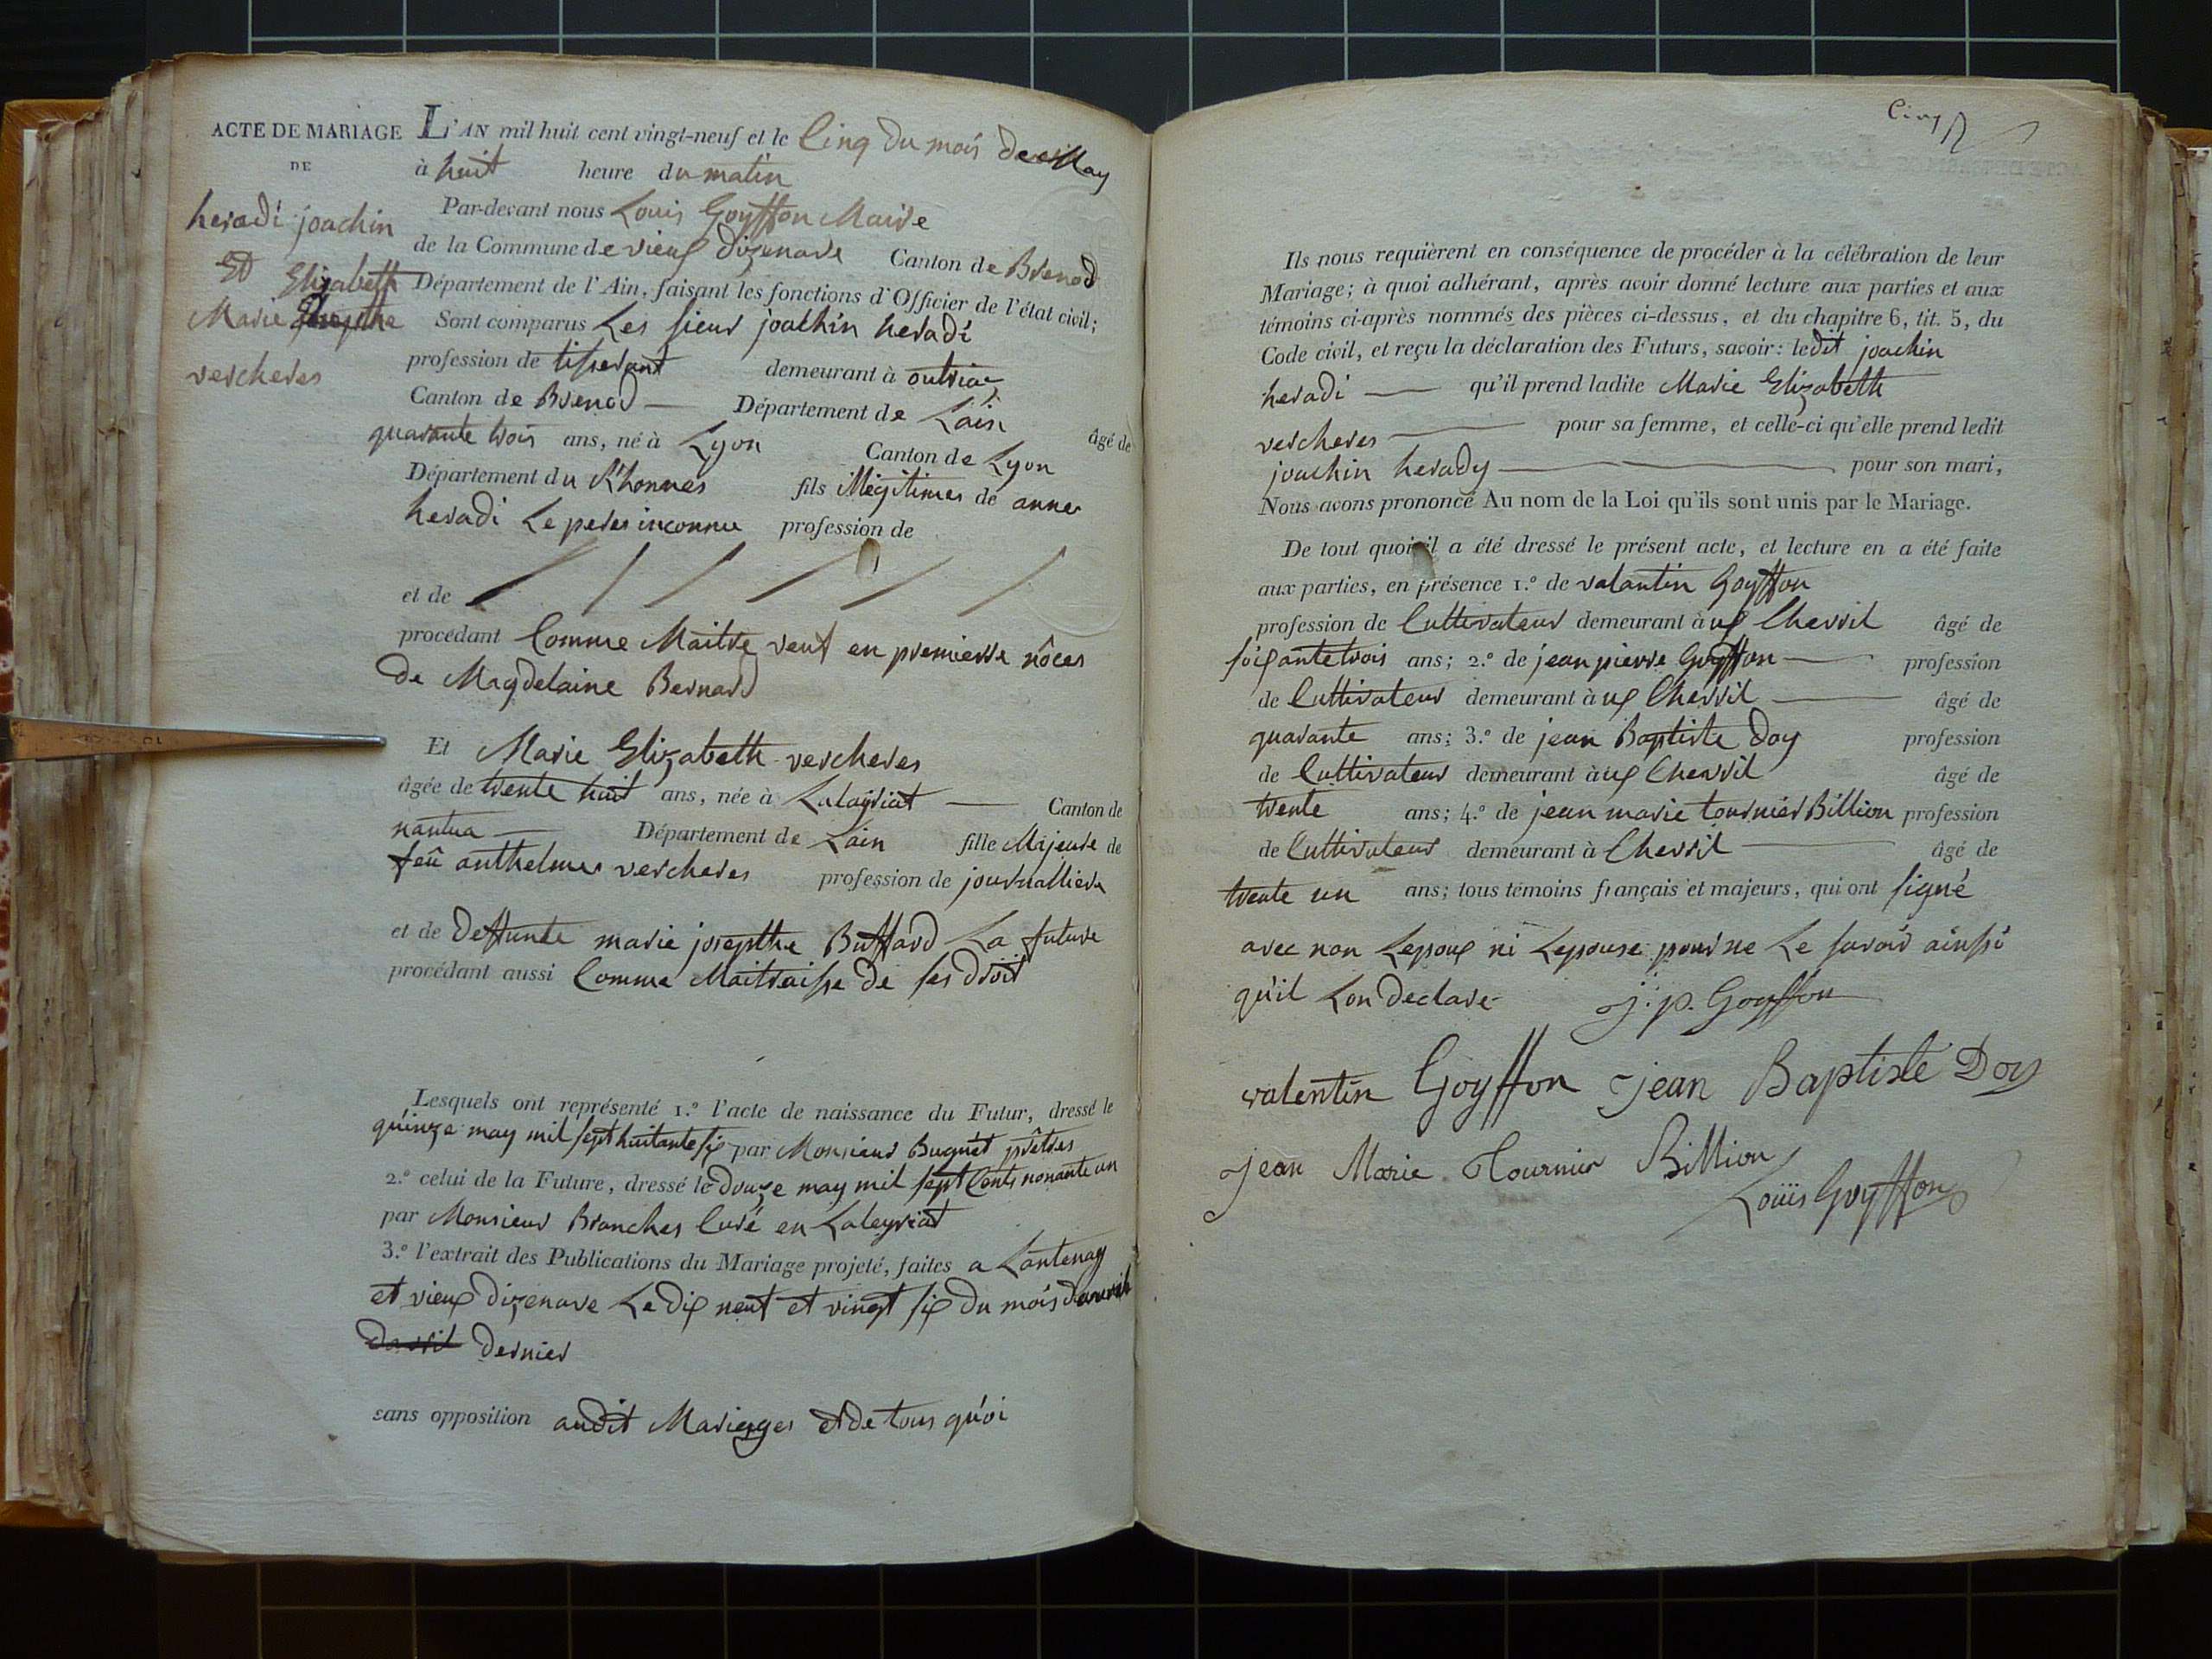 ACTE DE MARIAGE
DE
heradi joachin
Et Elizabeth
Marie
vercheres
L'AN mil huit cent vingt-neuf et le Cinq du mois de May
à huit heure du matin
Par-devant nous Louis Goyffon Maire
de la Commune de vieux dizenave Canton de Brenod
Département de l'Ain, faisant les fonctions d'Officier de l'état civil;
Sont comparus Les sieur joachin heradi
profession de tisserant demeurant à outriaz
Canton de Brenod Département de Lain âgé de
quarante trois ans, né à Lyon Canton de Lyon
Département du Rhonnes fils illégitimes de anne
heradi Le peres inconnu profession de
et de
procédant Comme Maitre veuf en premierre nôces
de Magdelaine Bernard
Et Marie Elizabeth vercheres
âgée de trente huit ans, née à Laleyriat Canton de
nantua Département de Lain fille Majeure de
feû anthelme vercheres profession de journalliere
et de deffunte marie josepthe Buffard La future
procédant aussi Comme Maitraisse de ses droit
Lesquels ont représenté 1.º l'acte de naissance du Futur, dressé le
quinze may mil sept huitante six par Monsieur Buguet prêtres
2.º celui de la Future, dressé le douze may mil sept Cents nonante un
par Monsieur Branches Curé en Laleyriat
3.º l'extrait des Publications du Mariage projeté, faites a Lantenay
et vieux dizenave Le dix neuf et vingt six du mois davril
davril dernier
sans opposition audit Mariages et de tous quoi
Cinq
Ils nous requièrent en conséquence de procéder à la célébration de leur
Mariage; à quoi adhérant, après avoir donné lecture aux parties et aux
témoins ci-après nommés des pièces ci-dessus, et du chapitre 6, tit. 5, du
Code civil, et reçu la déclaration des Futurs, savoir: ledit joachin
heradi qu'il prend ladite Marie Elizabeth
vercheres pour sa femme, et celle-ci qu'elle prend ledit
joachin herady pour son mari,
Nous avons prononcé Au nom de la Loi qu'ils sont unis par le Mariage.
De tout quoi il a été dressé le présent acte, et lecture en a été faite
aux parties, en présence 1.º de valantin Goyffon
profession de Cultivateur demeurant à ux Cherril âgé de
soixante trois ans; 2.º de jean pierre Goyffon profession
de Cultivateur demeurant à ux Cherril âgé de
quarante ans; 3.º de jean Baptiste Doy profession
de Cultivateur demeurant à ux Cherril âgé de
trente ans; 4.º de jean marie tournier Billion profession
de Cultivateur demeurant à Cherril âgé de
trente un ans; tous témoins français et majeurs, qui ont signé
avec non Lepoux ni Lepouse pour ne Le savoir ainssi
qu'il Lon declare J. p. Goyffon
valentin Goyffon jean Baptiste Doy
jean Marie Tournier Billion
Louis Goyffon